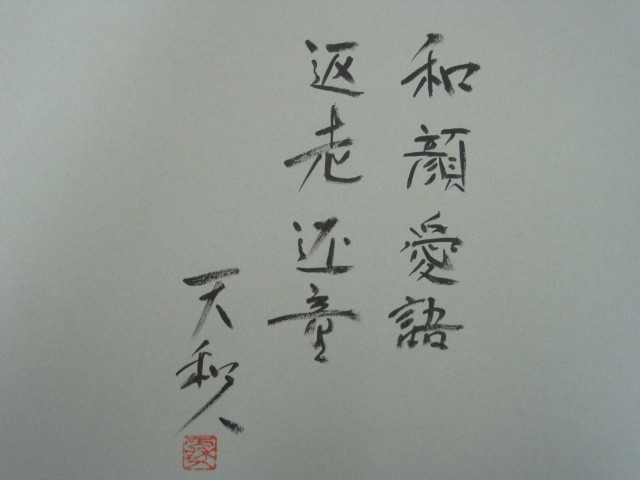 和顔愛語
返老还童
天和人